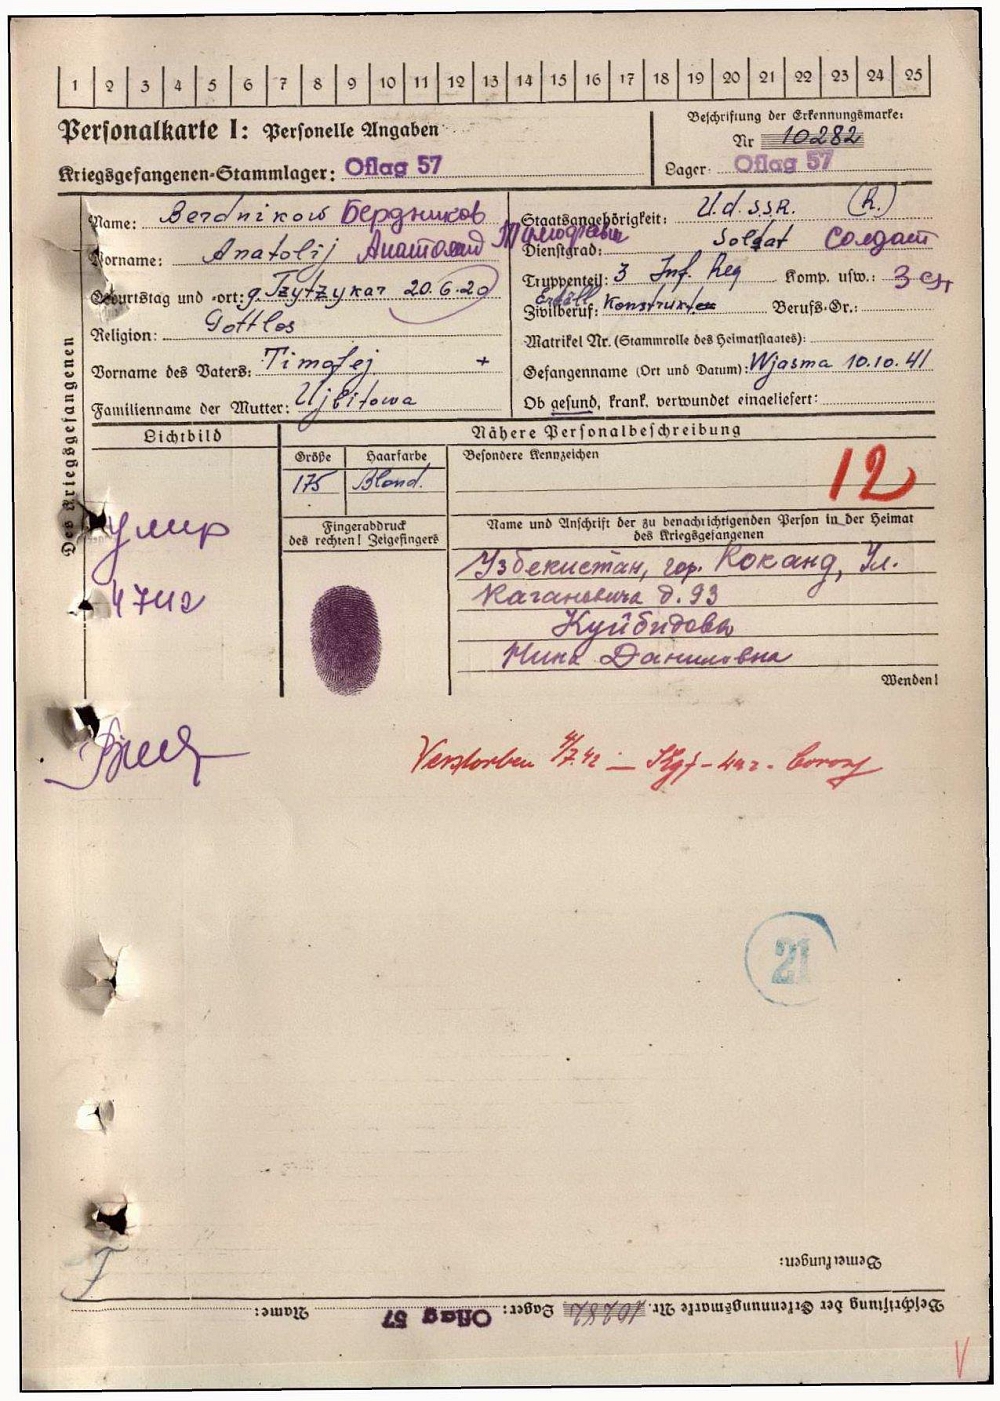 1 2 3 4 5 6 7 8 9 10 11 12 13 14 15 16 17 18 19 20 21 22 23 24 25
Personalkarte I: Personelle Angaben
Kriegsgefangenen-Stammlager: Oflag 57
Beschriftung der Erkennungsmarke:
Nr 10282
Lager: Oflag 57
Des Kriegsgefangenen
Name: Berdnikow Бердников
Vorname: Anatolij Анатолий Тимофеевич
Geburtstag und -ort: g. Tzytzykar 20.6.20
Religion: Gottlos
Vorname des Vaters: Timofej +
Familienname der Mutter: Ujbitowa
Staatsangehörigkeit: U.d.S.S.R. (R.)
Dienstgrad: Soldat Солдат
Truppenteil: 3 Inf. Reg Komp. usw.: 3
Zivilberuf: Konstrukteur Berufs-Gr.:
Matrikel Nr. (Stammrolle des Heimatstaates):
Gefangenname (Ort und Datum): Wjasma 10.10.41
Ob gesund, krank, verwundet eingeliefert:
Lichtbild
Nähere Personalbeschreibung
Größe Haarfarbe Besondere Kennzeichen
175 Blond. 12
Fingerabdruck
des rechten! Zeigefingers
Name und Anschrift der zu benachrichtigenden Person in der Heimat
des Kriegsgefangenen
Узбекистан, гор. Коканд, Ул.
Кагановича д. 93
Куйбидова
Нина Даниловна
Wenden!
умер
4 7 42
Verstorben 4/7.42 –
21
Bemerkungen:
Beschriftung der Erkennungsmarke Nr. 10282 Lager: Oflag 57 Name: